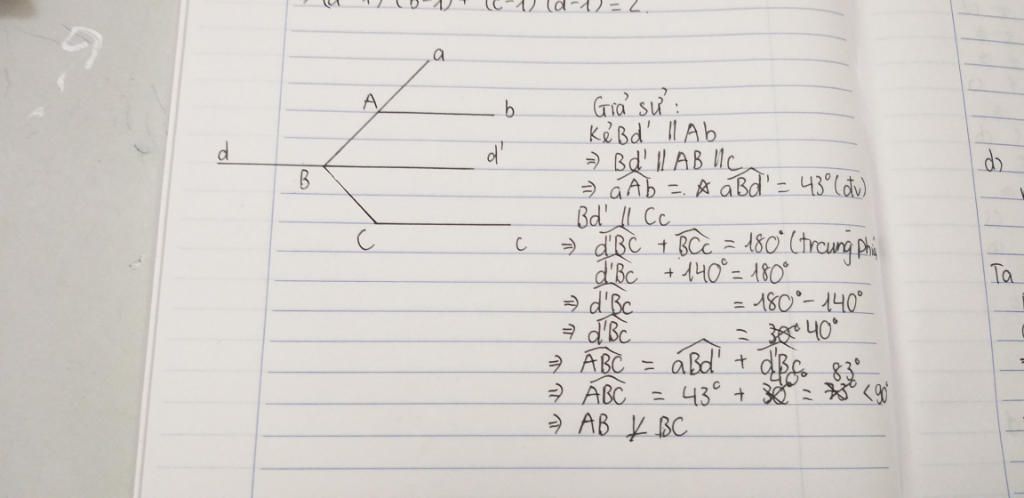 (b-1) + (c-1) (d-1) = 2.
a
A
b
d
d'
B
C
c
Giả sử:
Kẻ Bd' // Ab
⇒ Bd' // AB // c
⇒ aAb = aBd' = 43° (đv)
Bd' // Cc
⇒ d'BC + BCc = 180° (trcung phía
d'Bc + 140° = 180°
⇒ d'Bc = 180° - 140°
⇒ d'Bc = 30° 40°
⇒ ABC = aBd' + d'Bc
40° 83°
⇒ ABC = 43° + 30° = 73° < 90°
⇒ AB ⊥̸ BC
d)
Ta